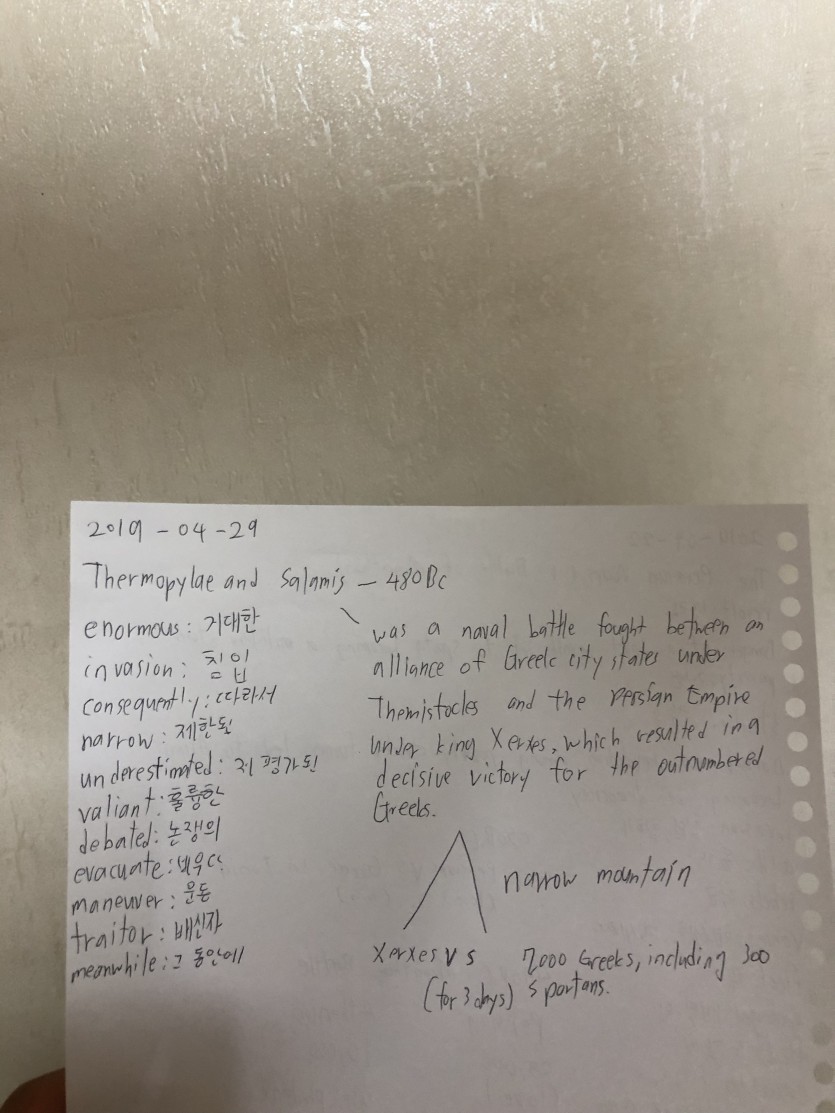 2019 - 04 - 29
Thermopylae and Salamis - 480BC
enormous : 거대한
invasion : 침입
consequently : 따라서
narrow : 제한된
underestimated : 저 평가된
valiant : 훌륭한
debated : 논쟁의
evacuate : 비우다
maneuver : 운동
traitor : 배신자
meanwhile : 그 동안에
was a naval battle fought between an
alliance of Greek city states under
Themistocles and the Persian Empire
under king Xerxes, which resulted in a
decisive victory for the outnumbered
Greeks.
narrow mountain
Xerxes VS 7000 Greeks, including 300
(for 3 days) Spartans.